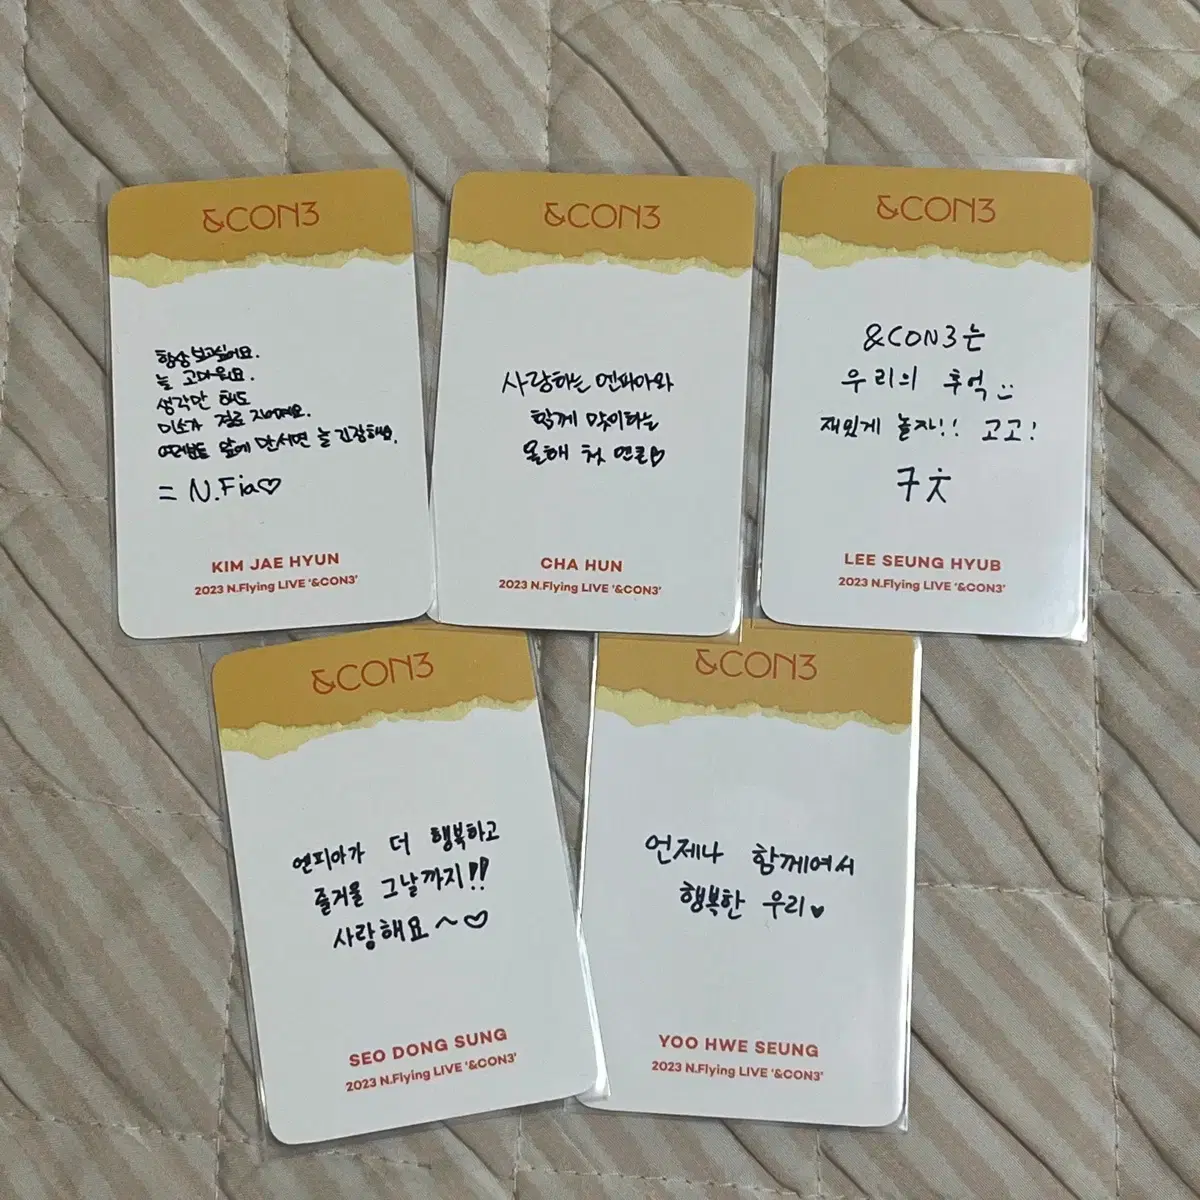 &CON3
항상 보고싶어요.
늘 고마워요.
생각만 해도
미소가 절로 지어져요.
여러분들 앞에 만서면 늘 긴장해요.
= N.Fia♡
KIM JAE HYUN
2023 N.Flying LIVE '&CON3'
&CON3
사랑하는 엔피아와
함께 맞이하는
올해 첫 엔콘♡
CHA HUN
2023 N.Flying LIVE '&CON3'
&CON3
&CON3는
우리의 추억
재밌게 놀자!! 고고!
LEE SEUNG HYUB
2023 N.Flying LIVE '&CON3'
&CON3
엔피아가 더 행복하고
즐거울 그날까지!!
사랑해요~♡
SEO DONG SUNG
2023 N.Flying LIVE '&CON3'
&CON3
언제나 함께여서
행복한 우리♥
YOO HWE SEUNG
2023 N.Flying LIVE '&CON3'